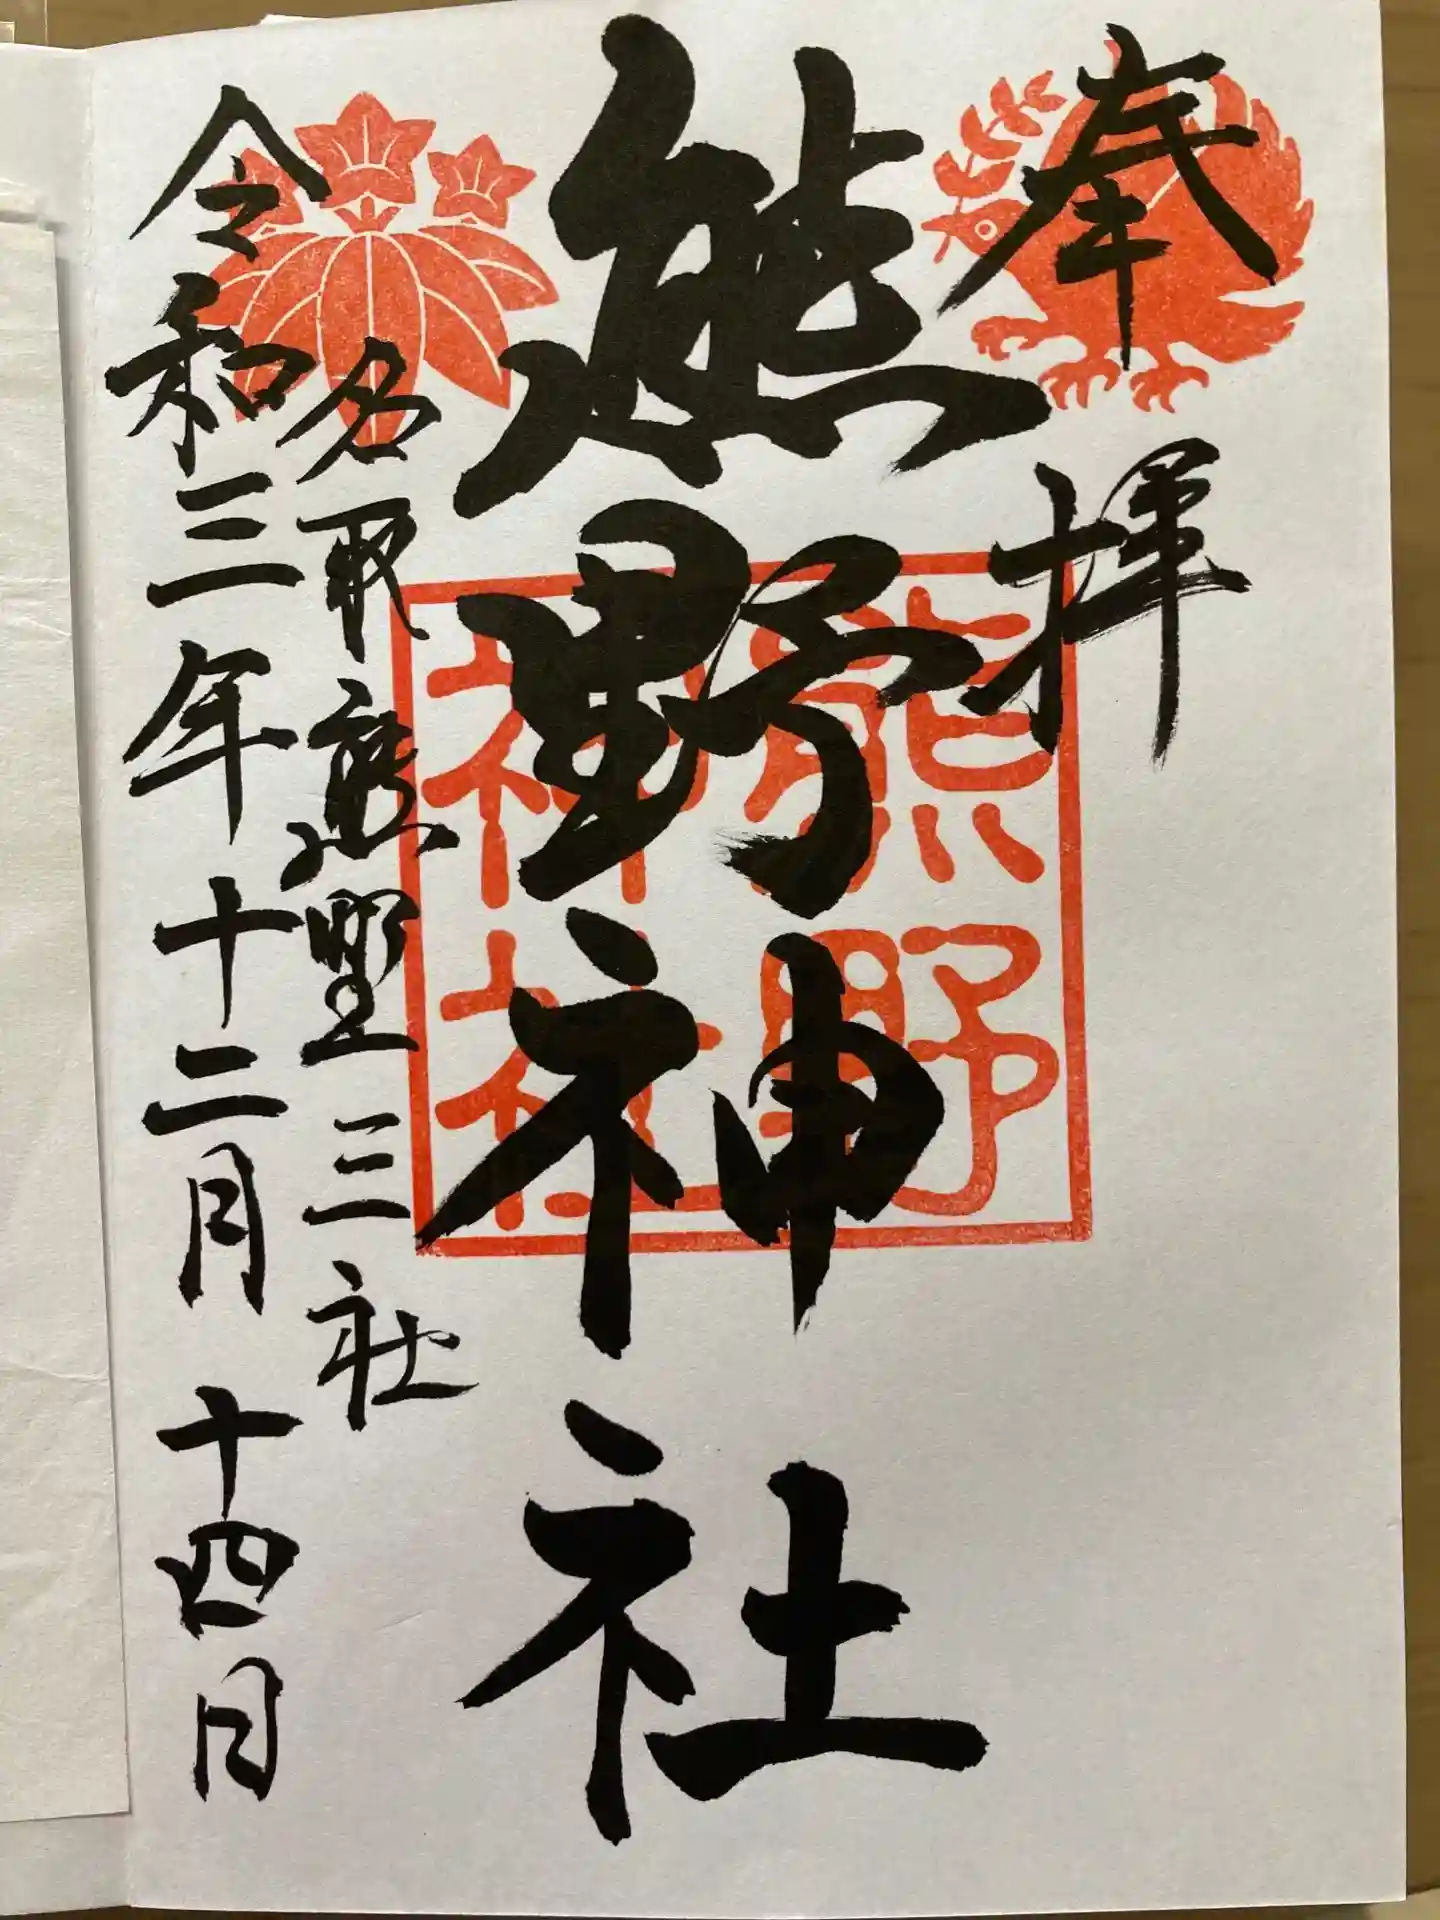 奉拝
熊野神社
熊野神社
名取熊野三社
令和三年十二月十四日